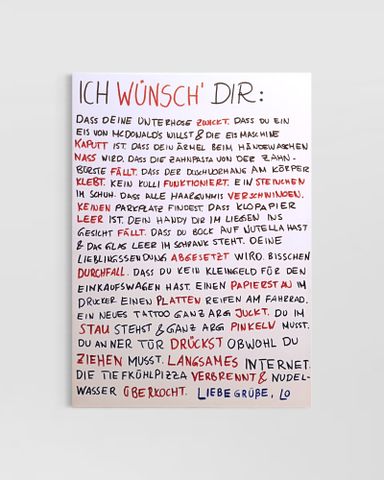 ICH WÜNSCH' DIR:
DASS DEINE UNTERHOSE ZWICKT. DASS DU EIN
EIS VON MCDONALD'S WILLST & DIE EISMASCHINE
KAPUTT IST. DASS DEIN ÄRMEL BEIM HÄNDEWASCHEN
NASS WIRD. DASS DIE ZAHNPASTA VON DER ZAHN-
BÜRSTE FÄLLT. DASS DER DUSCHVORHANG AM KÖRPER
KLEBT. KEIN KULLI FUNKTIONIERT. EIN STEINCHEN
IM SCHUH. DASS ALLE HAARGUMMIS VERSCHWINDEN.
KEINEN PARKPLATZ FINDEST. DASS KLOPAPIER
LEER IST. DEIN HANDY DIR IM LIEGEN INS
GESICHT FÄLLT. DASS DU BOCK AUF NUTELLA HAST
& DAS GLAS LEER IM SCHRANK STEHT. DEINE
LIEBLINGSSENDUNG ABGESETZT WIRD. BISSCHEN
DURCHFALL. DASS DU KEIN KLEINGELD FÜR DEN
EINKAUFSWAGEN HAST. EINEN PAPIERSTAU IM
DRUCKER EINEN PLATTEN REIFEN AM FAHRRAD.
EIN NEUES TATTOO GANZ ARG JUCKT. DU IM
STAU STEHST & GANZ ARG PINKELN MUSST.
DU AN NER TÜR DRÜCKST OBWOHL DU
ZIEHEN MUSST. LANGSAMES INTERNET.
DIE TIEFKÜHLPIZZA VERBRENNT & NUDEL-
WASSER ÜBERKOCHT. LIEBE GRÜßE, LO